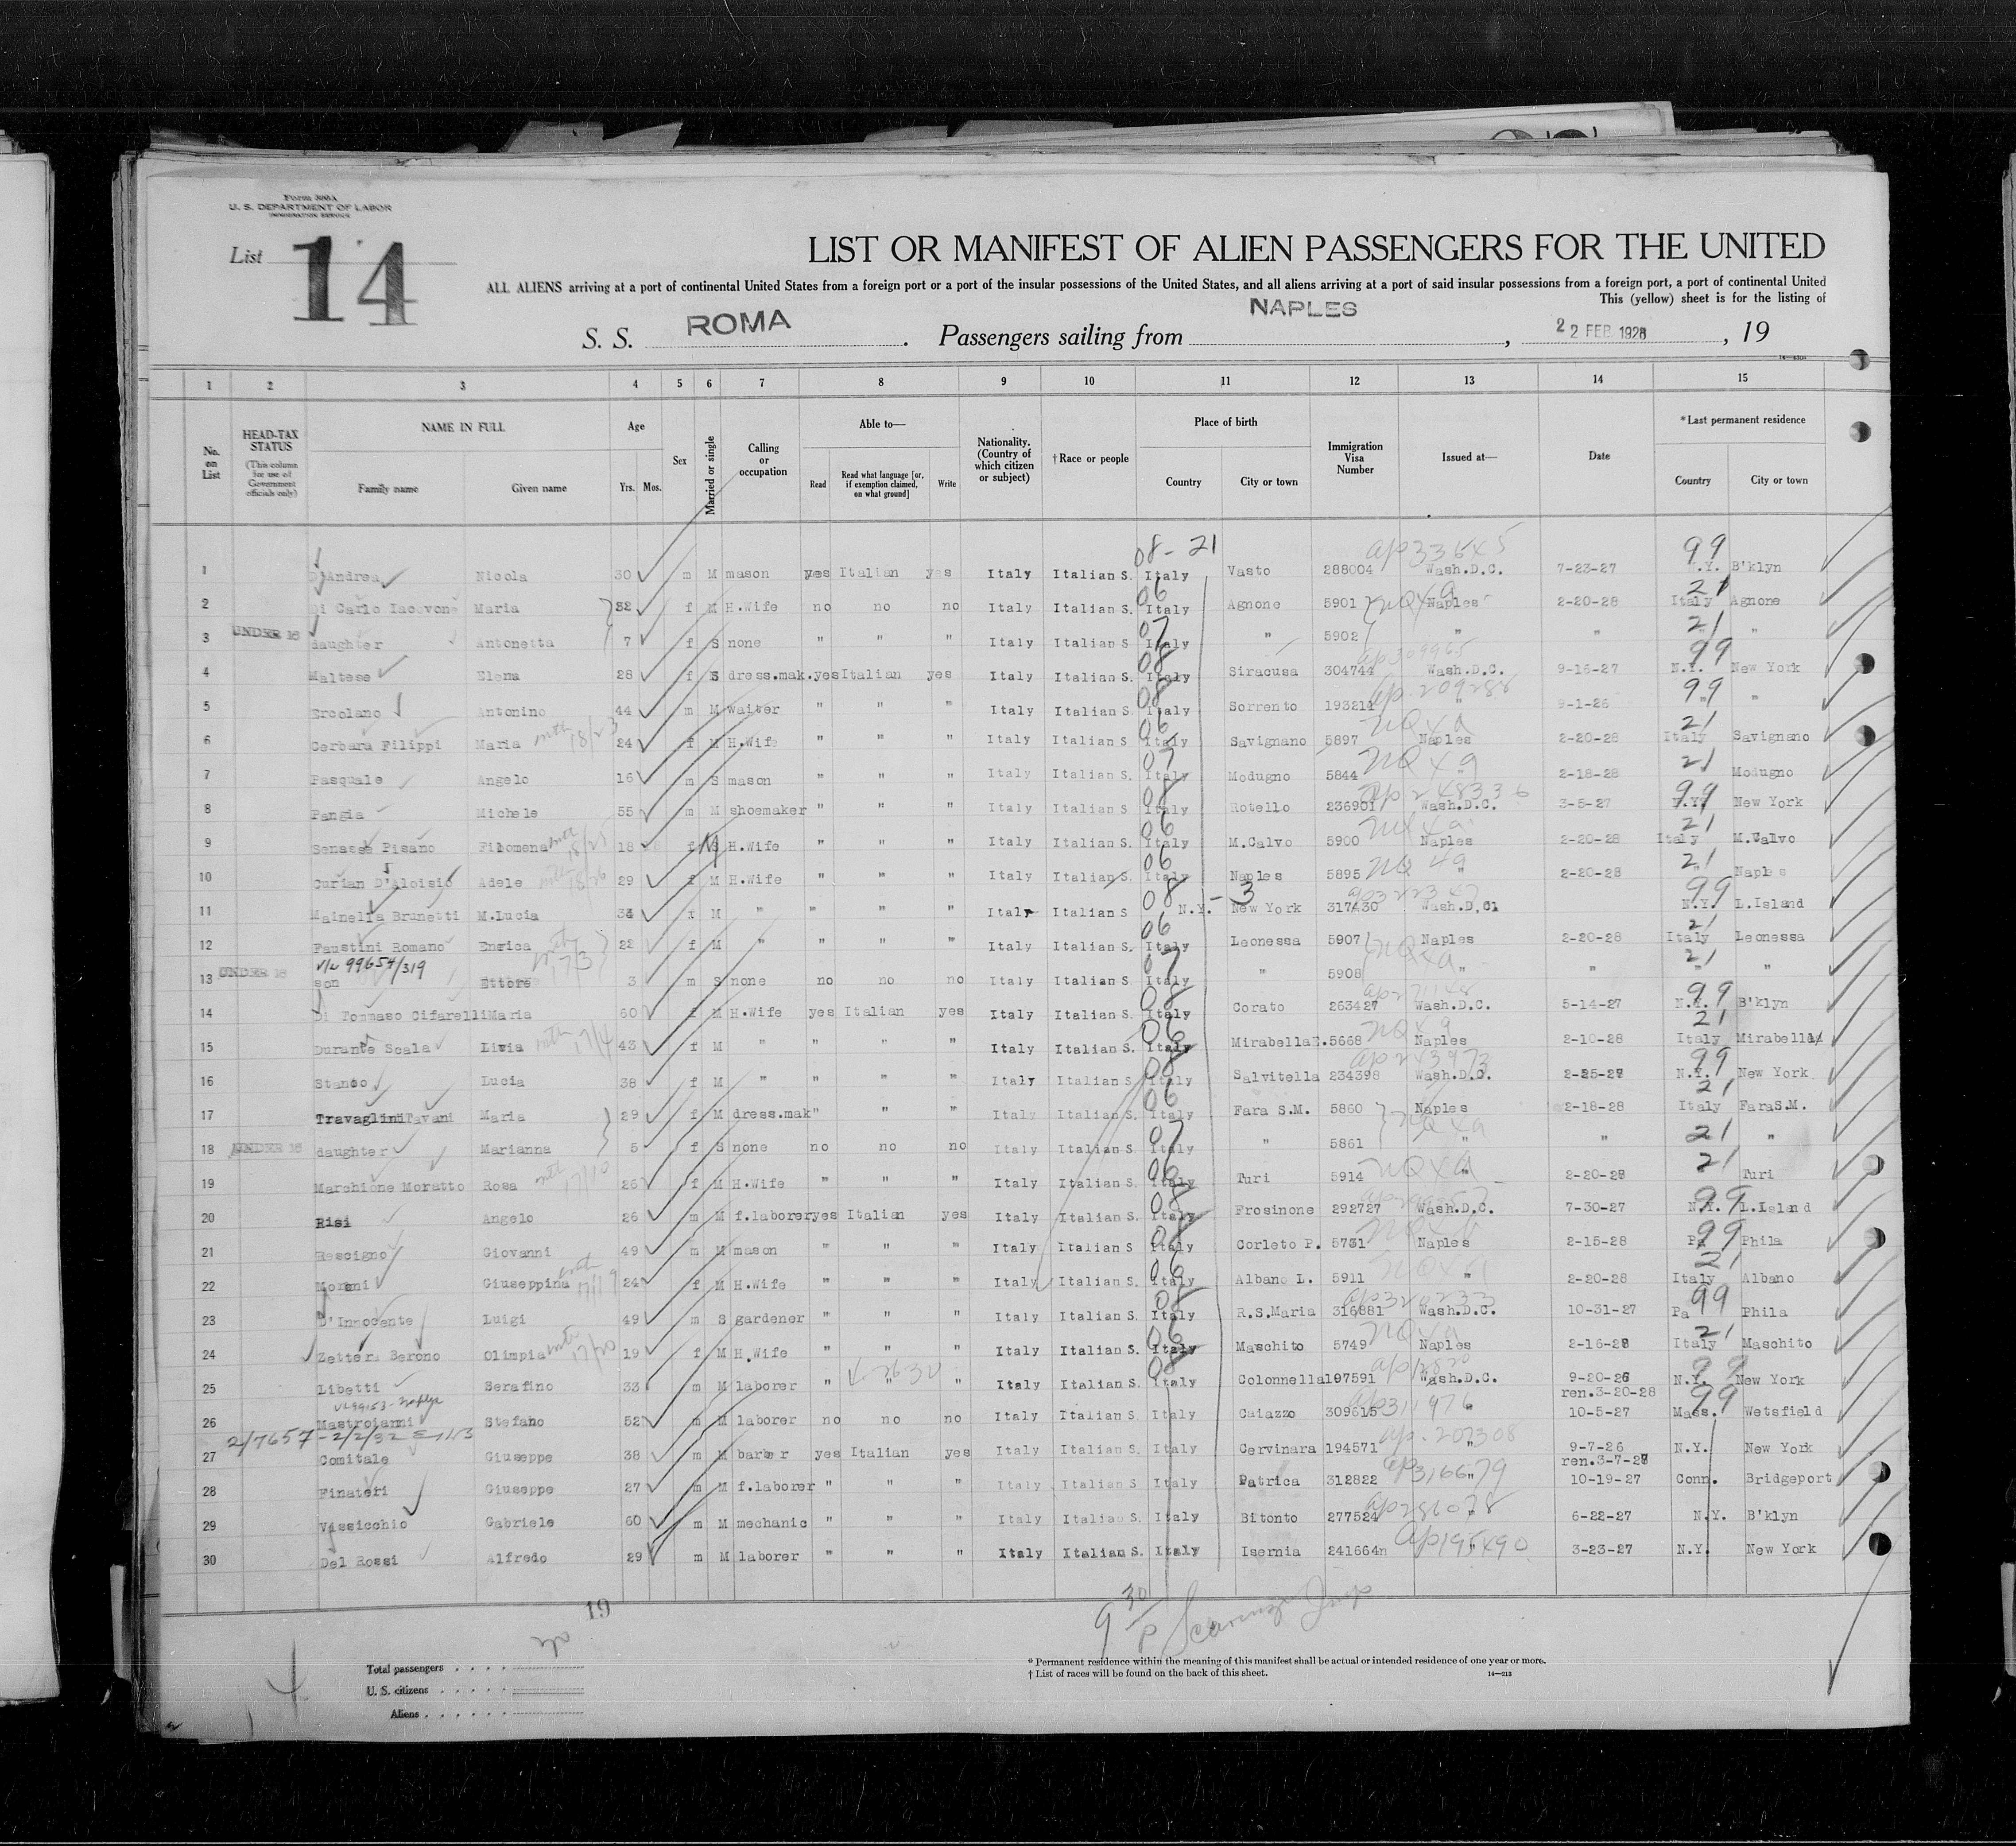 Form 500A
U. S. DEPARTMENT OF LABOR
IMMIGRATION SERVICE
List 14
LIST OR MANIFEST OF ALIEN PASSENGERS FOR THE UNITED
ALL ALIENS arriving at a port of continental United States from a foreign port or a port of the insular possessions of the United States, and all aliens arriving at a port of said insular possessions from a foreign port, a port of continental United
This (yellow) sheet is for the listing of
S. S. ROMA . Passengers sailing from NAPLES , 22 FEB 1928 , 19
1 2 3 4 5 6 7 8 9 10 11 12 13 14 15
No. on List
HEAD-TAX STATUS (This column for use of Government officials only)
NAME IN FULL Family name Given name
Age Yrs. Mos.
Sex
Married or single
Calling or occupation
Able to— Read Read what language [or, if exemption claimed, on what ground] Write
Nationality. (Country of which citizen or subject)
†Race or people
Place of birth Country City or town
Immigration Visa Number
Issued at—
Date
*Last permanent residence Country City or town
08-21 99
1 D'Andrea Nicola 30 m M mason yes Italian yes Italy Italian S. Italy Vasto 288004 Wash.D.C. 7-23-27 N.Y. B'klyn
2 Di Carlo Iacovone Maria 32 f M H.Wife no no no Italy Italian S. 06 Italy Agnone 5901 Naples 2-20-28 21 Italy Agnone
3 UNDER 16 daughter Antonetta 7 f S none " " " Italy Italian S 07 Italy " 5902 " " 21 " "
4 Maltese Elena 28 f S dress.mak. yes Italian yes Italy Italian S. 08 Italy Siracusa 304744 ap309965 Wash.D.C. 9-16-27 99 N.Y. New York
5 Ercolano Antonino 44 m M waiter " " " Italy Italian S. 08 Italy Sorrento 193214 ap.209288 " 9-1-26 99 " "
6 Gerbara Filippi Maria 24 f M H.Wife " " " Italy Italian S 06 Italy Savignano 5897 Naples 2-20-28 21 Italy Savignano
7 Pasquale Angelo 16 m S mason " " " Italy Italian S. 07 Italy Modugno 5844 " 2-18-28 21 Modugno
8 Pangia Michele 55 m M shoemaker " " " Italy Italian S 08 Italy Rotello 236901 ap248336 Wash.D.C. 3-5-27 99 N.Y. New York
9 Senasse Pisano Filomena 18 f M H.Wife " " " Italy Italian S. 06 Italy M.Calvo 5900 Naples 2-20-28 21 Italy M.Calvo
10 Curian D'Aloisio Adele 29 f M H.Wife " " " Italy Italian S. 06 Italy Naples 5895 " 2-20-28 21 " Naples
11 Mainella Brunetti M.Lucia f M " " " " Italy Italian S 08 N.Y. - 3 New York 317430 Wash.D.C. 99 N.Y. L.Island
12 Faustini Romano Enrica 22 f M " " " " Italy Italian S. 06 Italy Leonessa 5907 Naples 2-20-28 21 Italy Leonessa
V/L 99657/319
13 UNDER 16 son Ettore 3 m S none no no no Italy Italian S. 07 Italy " 5908 " " 21 " "
14 Di Tommaso Cifarelli Maria 60 f M H.Wife yes Italian yes Italy Italian S. 08 Italy Corato 263427 Wash.D.C. 5-14-27 99 N.Y. B'klyn
15 Durante Scala Livia 43 f M " " " " Italy Italian S. 06 Italy MirabellaE. 5668 Naples 2-10-28 21 Italy Mirabella
16 Stanco Lucia 38 f M " " " " Italy Italian S 08 Italy Salvitella 234398 ap243973 Wash.D.C. 2-25-27 99 N.Y. New York
17 Travaglini Tavani Maria 29 f M dress.mak " " " Italy Italian S. 06 Italy Fara S.M. 5860 Naples 2-18-28 21 Italy FaraS.M.
18 UNDER 16 daughter Marianna 5 f S none no no no Italy Italian S. 07 Italy " 5861 " " 21 "
19 Marchione Moratto Rosa 26 f M H.Wife " " " Italy Italian S. 06 Italy Turi 5914 " 2-20-28 21 Turi
20 Risi Angelo 26 m M f.laborer yes Italian yes Italy Italian S. 08 Italy Frosinone 292727 Wash.D.C. 7-30-27 99 N.Y. L.Island
21 Rescigno Giovanni 49 m M mason " " " Italy Italian S Italy Corleto P. 5731 Naples 2-15-28 99 Pa Phila
22 Moreni Giuseppina 24 f M H.Wife " " " Italy Italian S. 06 Italy Albano L. 5911 " 2-20-28 21 Italy Albano
23 D'Innocente Luigi 49 m S gardener " " " Italy Italian S. 08 Italy R.S.Maria 316881 Wash.D.C. 10-31-27 99 Pa Phila
24 Zettera Berono Olimpia 19 f M H.Wife " " " Italy Italian S. 06 Italy Maschito 5749 Naples 2-16-28 21 Italy Maschito
25 Libetti Serafino 33 m M laborer " " " Italy Italian S. 08 Italy Colonnella 197591 Wash.D.C. 9-20-26 99 N.Y. New York
ren.3-20-28
26 Mastroianni Stefano 52 m M laborer no no no Italy Italian S. Italy Caiazzo 309615 ap311976 " 10-5-27 99 Mass. Wetsfield
2/7657 - 2/2/32
27 Comitale Giuseppe 38 m M barber yes Italian yes Italy Italian S. Italy Cervinara 194571 ap.207308 " 9-7-26 N.Y. New York
ren.3-7-28
28 Finateri Giuseppe 27 m M f.laborer " " " Italy Italian S Italy Patrica 312822 ap316679 " 10-19-27 Conn. Bridgeport
29 Vissicchio Gabriele 60 m M mechanic " " " Italy Italian S Italy Bitonto 277524 ap281078 " 6-22-27 N.Y. B'klyn
30 Del Rossi Alfredo 29 m M laborer " " " Italy Italian S. Italy Isernia 241664 ap195490 " 3-23-27 N.Y. New York
19
9 30 p
Total passengers
U. S. citizens
Aliens
* Permanent residence within the meaning of this manifest shall be actual or intended residence of one year or more.
† List of races will be found on the back of this sheet. 14—213